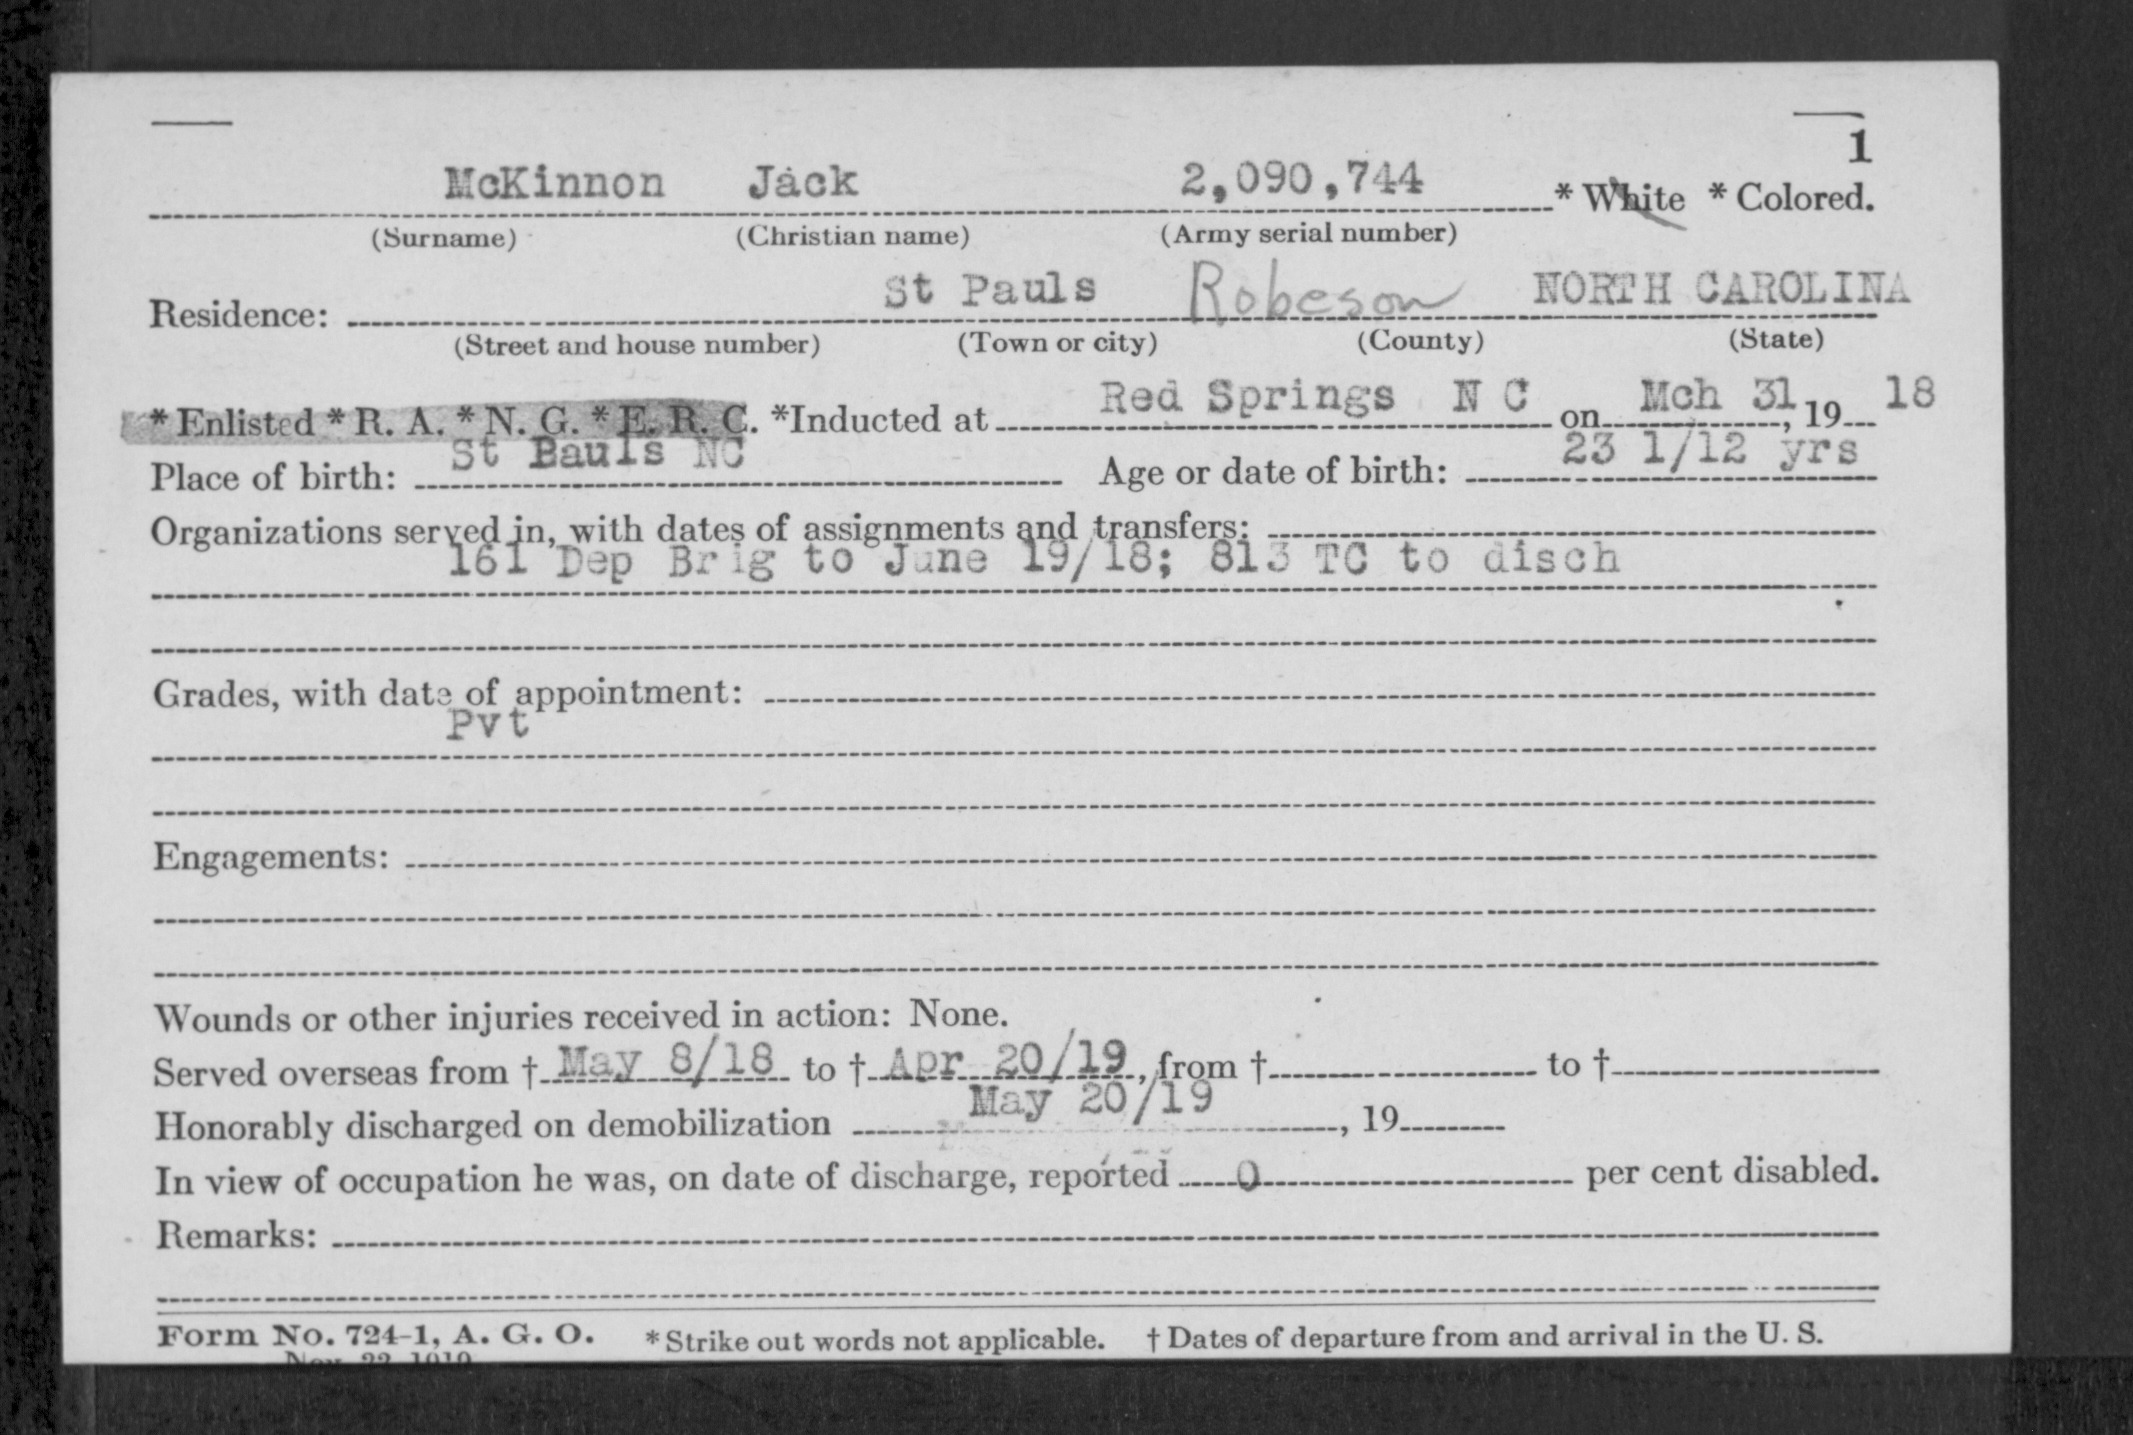 1
McKinnon Jack 2,090,744 * White * Colored.
(Surname) (Christian name) (Army serial number)
Residence: St Pauls Robeson NORTH CAROLINA
(Street and house number) (Town or city) (County) (State)
* Enlisted * R. A. * N. G. * E. R. C. *Inducted at Red Springs N C on Mch 31, 19 18
Place of birth: St Pauls NC Age or date of birth: 23 1/12 yrs
Organizations served in, with dates of assignments and transfers:
161 Dep Brig to June 19/18; 813 TC to disch
Grades, with date of appointment:
Pvt
Engagements:
Wounds or other injuries received in action: None.
Served overseas from † May 8/18 to † Apr 20/19, from † to †
Honorably discharged on demobilization May 20/19, 19
In view of occupation he was, on date of discharge, reported 0 per cent disabled.
Remarks:
Form No. 724-1, A. G. O. * Strike out words not applicable. † Dates of departure from and arrival in the U. S.
Nov. 22, 1919